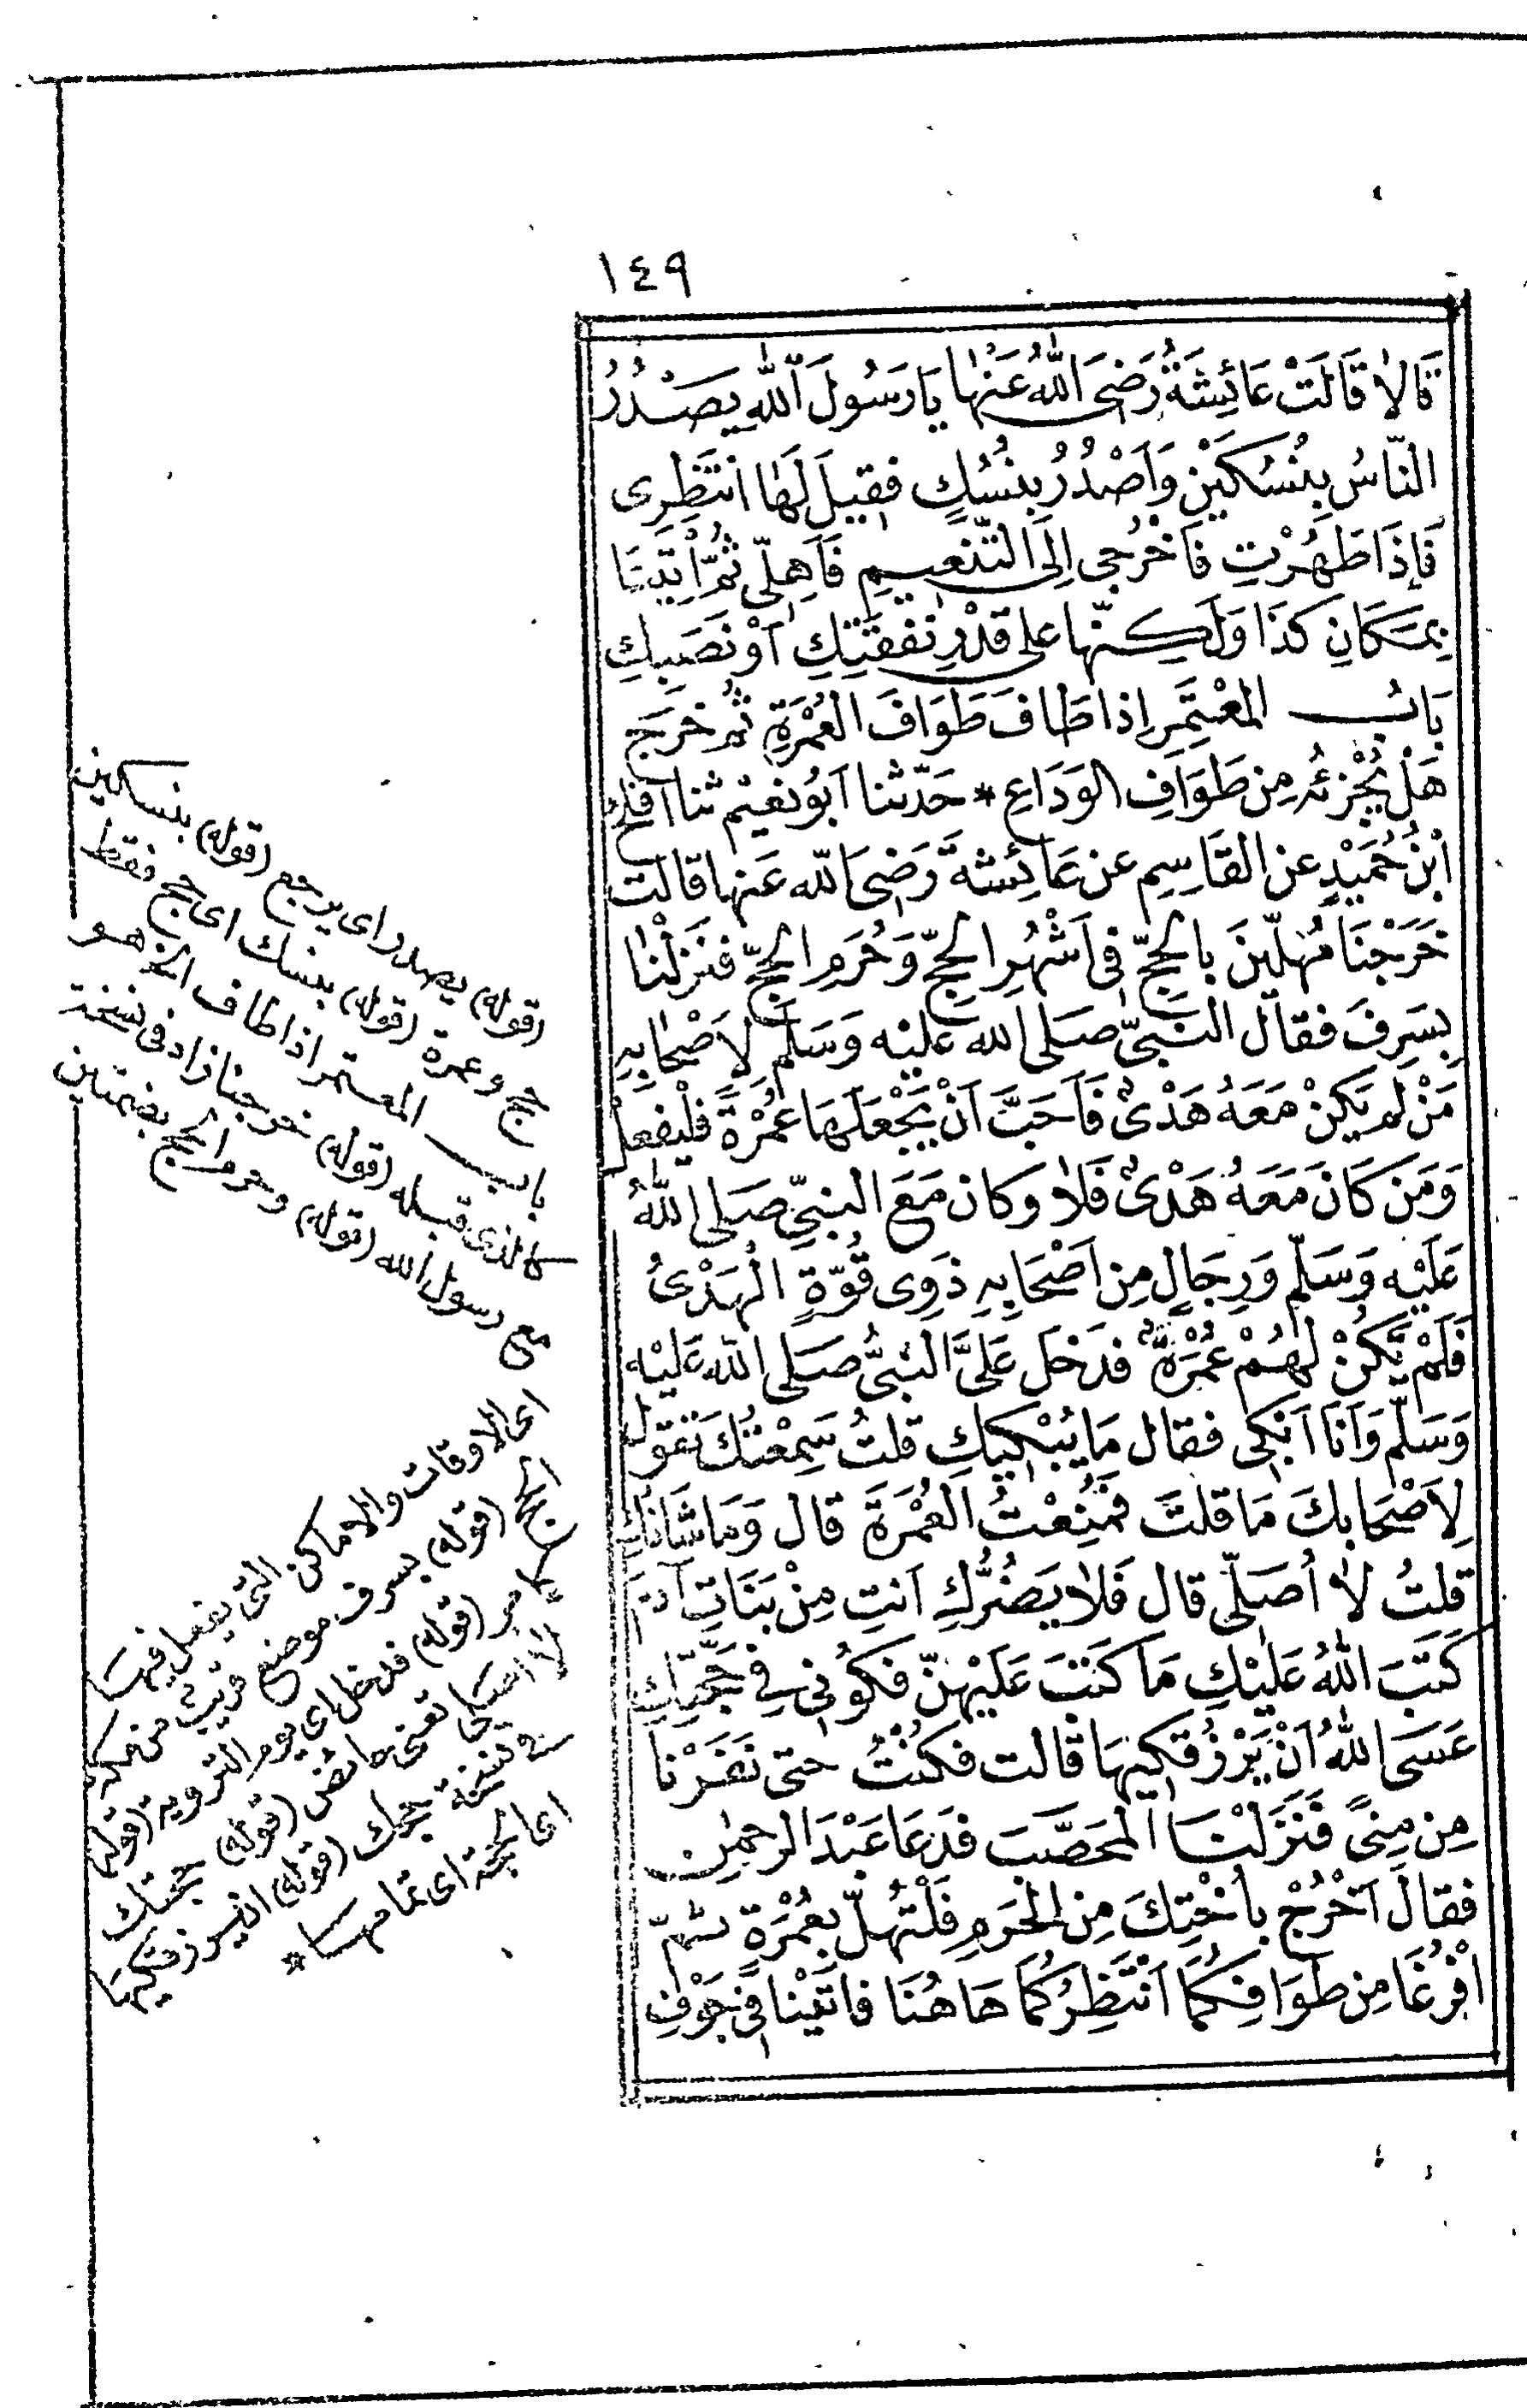 ١٤٩
قَالَا قَالَتْ عَائِشَةُ رَضِىَ اللّٰهُ عَنْهَا يَا رَسُولَ اللّٰهِ يَصْدُرُ
النَّاسُ بِنُسُكَيْنِ وَاَصْدُرُ بِنُسُكٍ فقيلَ لَهَا انْتَظِرِى
فَاِذَا طَهُرْتِ فَاخْرُجِى اِلَى التَّنْعِيمِ فَاَهِلِّى ثُمَّ ائْتِيَنَا
بِمَكَانِ كَذَا وَلَكِنَّها على قَدْرِ نَفَقَتِكِ اَوْ نَصَبِكِ
بَابُ المُعْتَمِرِ اِذا طَافَ طَوَافَ العُمْرَةِ ثُمَّ خَرَجَ
هَلْ يُجْزِئُهُ مِن طَوَافِ الوَدَاعِ * حَدّثنا اَبُو نعَيْم ثنا اَفْلَحُ
ابْنُ حُمَيْدٍ عن القَاسِمِ عن عَائِشةَ رَضِىَ اللّه عَنها قالت
خَرَجْنَا مُهِلّينَ بالحَجِّ فى اَشْهُرِ الحَجِّ وَحُرُمِ الحَجِّ فنَزَلْنَا
بِسَرِفَ فقال النَّبىُّ صَلى الله عَليْه وَسَلّم لِاَصْحَابِهِ
مَنْ لم يَكنْ مَعَهُ هَدْىٌ فَاَحَبَّ اَنْ يَجْعَلَهَا عُمْرَةً فلْيفعلْ
وَمَن كَانَ مَعَهُ هَدْىٌ فَلَا وكان مَعَ النبىِّ صَلى اللّٰهُ
عَلَيْه وَسَلّم وَرِجَالٍ مِن اَصْحَابِهِ ذَوِى قُوّةٍ الْهَدْىُ
فَلَمْ تَكُنْ لَهُمْ عُمْرَةً فدَخَل عَلَىَّ النبىُّ صَلى اللّه عَليْه
وَسَلّم وَاَنَا اَبْكِى فقال مَا يُبْكِيكِ قلتُ سَمِعْتُكَ تَقول
لِاَصْحَابِكَ مَا قلتَ فَمُنِعْتُ العُمْرَةَ قال وَمَا شَانُكِ
قلتُ لَا اُصَلّى قال فَلَا يَضُرُّكِ اَنتِ مِنْ بَنَاتِ آدَمَ
كَتَبَ اللّٰهُ عَلَيْكِ مَا كَتَبَ عَلَيْهِنّ فكُونِى فِى حَجَّتِكِ
عَسَى اللّٰهُ اَنْ يَرْزُقَكِيهَا قالت فكُنْتُ حتى نَفَرْنا
مِن مِنىً فَنَزَلْنَا المحَصَّبَ فدَعَا عَبْدَ الرحمٰن
فقالَ اخْرُجْ باُخْتِكَ مِن الحَرَمِ فَلْتُهِلّ بعُمْرَةٍ ثمّ
افْرُغَا مِن طَوَافِكُمَا اَنْتَظِرُكُمَا هَاهُنَا فاتَيْنا فى جَوْفِ
(قوله) يصدر اى يرجع (قوله) بنسكين
حج وعمرة (قوله) بنسك اى حج فقط
باب المعتمر اذا طاف الخ هو
كالذى قبله (قوله) خرجنا زاد فى نسخة
مع رسول الله (قوله) وحرم الحج بضمتين
اى الاوقات والاماكن التى يفعل فيها
الحج (قوله) بسرف موضع قريب من مكة
كما مر (قوله) فدخل اى يوم التروية (قوله)
لا اصلى تعنى حائض (قوله) حجتك
فى نسخة حجك (قوله) ان يرزقكيها
اى الحجة اى تمامها *